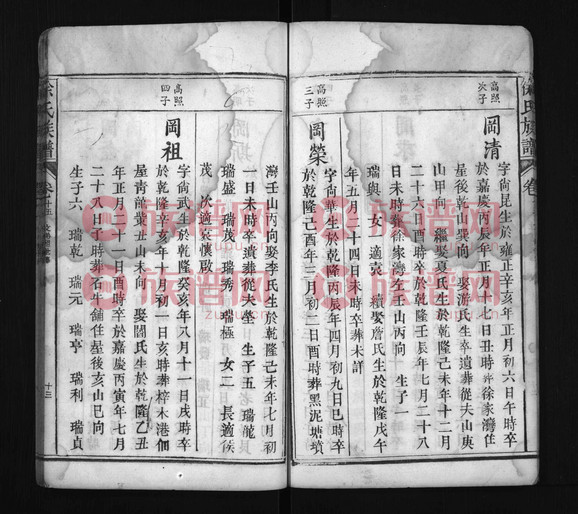 徐氏族譜
卷
高照
次子
岡清
字尙昆生於雍正辛亥年正月初六日午時卒
於嘉慶丙辰年正月十七日丑時葬徐家灣住
星後乾山巽向 娶游氏生卒遺葬從夫山庚
山甲向 繼娶夏氏生於乾隆己未年十二月
二十六日酉時卒於乾隆壬辰年七月二十八
日未時葬徐家灣左壬山丙向 生子一
瑞與 女一 適袁 續娶詹氏生於乾隆戊午
年五月二十四日未時卒葬未詳
高照
三子
岡榮
字尙華生於乾隆丙辰年四月初九日巳時卒
於乾隆己酉年三月初二日酉時葬黑泥塘墳
灣壬山丙向娶李氏生於乾隆己未年七月初
一日未時卒遺葬從夫塋 生子五 老 瑞龍
瑞盛 瑞茂 瑞秀 瑞極 女二 長適侯
茂 次適袁懷啟
高照
四子
岡祖
字尙武生於乾隆癸亥年八月十一日戌時卒
於乾隆辛亥年十月初一日亥時葬梓木港佃
屋靑龍
丑山未向 娶關氏生於乾隆乙丑
年正月二十一日酉時卒於嘉慶丙寅年七月
二十八
時葬石牛舖住星後亥山巳向
生子六 瑞乾 瑞元 瑞亨 瑞利 瑞貞
徐氏族譜
卷十五
十三
族譜网
族譜网
族譜网